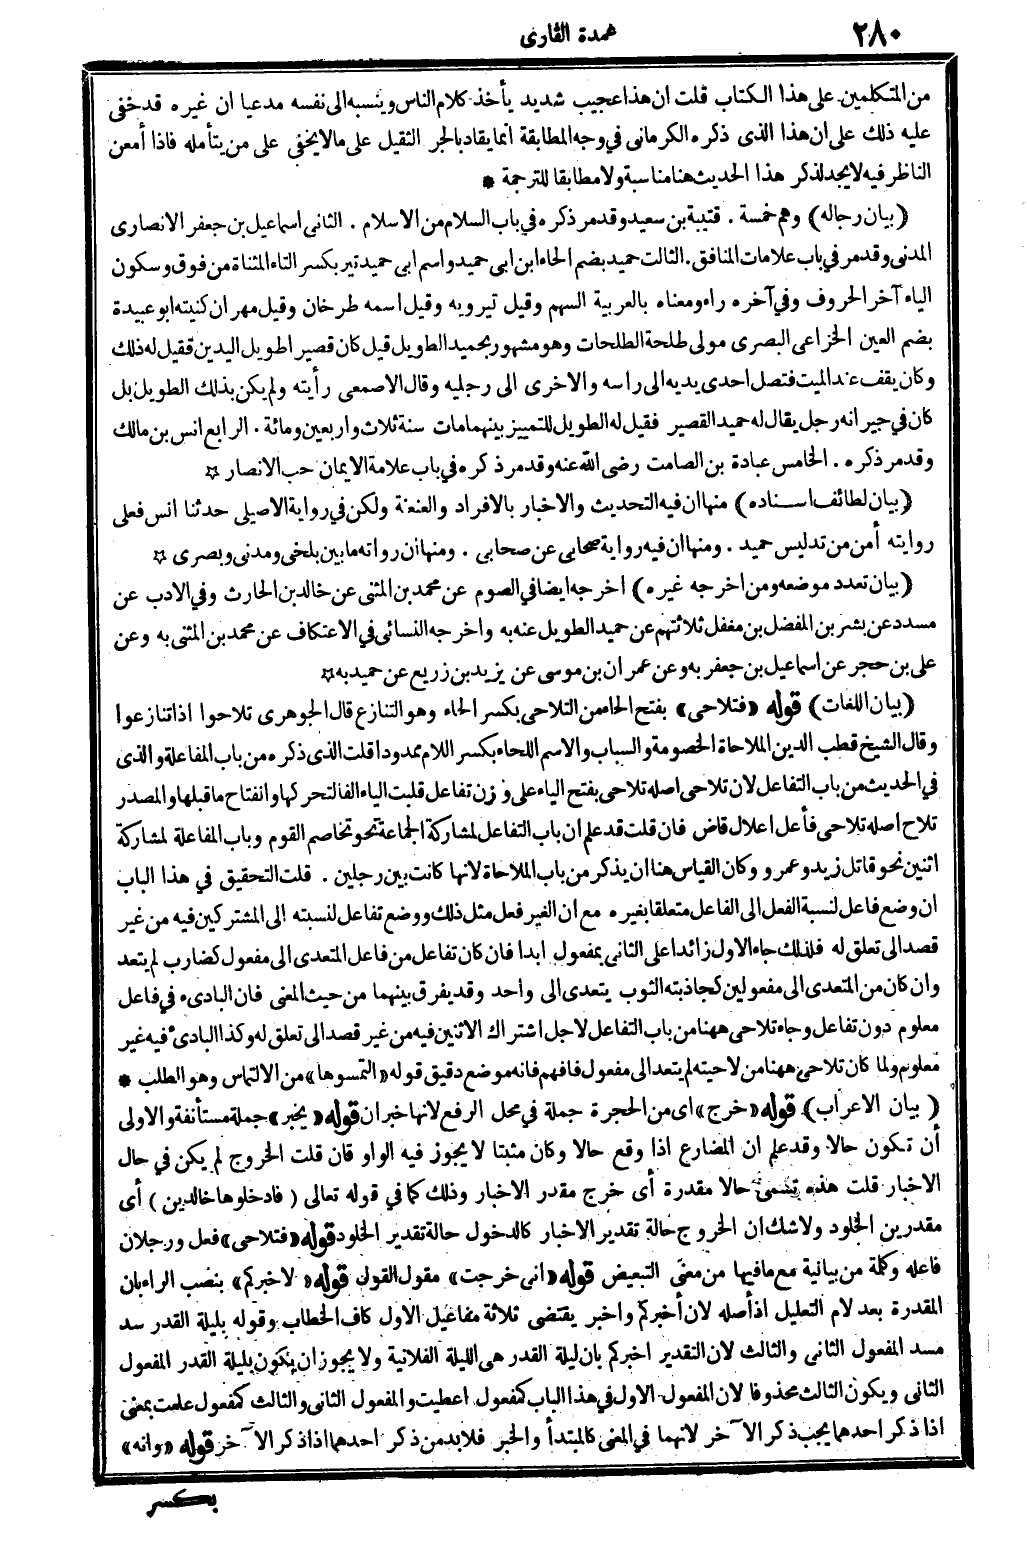 ٢٨٠
عمدة القارى
من المتكلمين على هذا الكتاب قلت ان هذا عجيب شديد يأخذ كلام الناس وينسبه الى نفسه مدعيا ان غيره قد خفى
عليه ذلك على ان هذا الذى ذكره الكرمانى فى وجه المطابقة انما يقاد بالجر الثقيل على مالا يخفى على من يتأمله فاذا أمعن
الناظر فيه لا يجد لذكر هذا الحديث هنا مناسبة ولا مطابقا للترجمة *
(بيان رجاله) وهم خمسة . قتيبة بن سعيد وقد مر ذكره فى باب السلام من الاسلام . الثانى اسماعيل بن جعفر الانصارى
المدنى وقد مر فى باب علامات المنافق . الثالث حميد بضم الحاء ابن ابى حميد واسم ابى حميد تير بكسر التاء المثناة من فوق وسكون
الياء آخر الحروف وفى آخره راء ومعناه بالعربية السهم وقيل تيرويه وقيل اسمه طرخان وقيل مهران كنيته ابو عبيدة
بضم العين الخزاعى البصرى مولى طلحة الطلحات وهو مشهور بحميد الطويل قيل كان قصيرا طويل اليدين فقيل له ذلك
وكان يقف عند الميت فتصل احدى يديه الى راسه والاخرى الى رجليه وقال الاصمعى رأيته ولم يكن بذلك الطويل بل
كان فى جيرانه رجل يقال له حميد القصير فقيل له الطويل للتمييز بينهما مات سنة ثلاث واربعين ومائة . الرابع انس بن مالك
وقد مر ذكره . الخامس عبادة بن الصامت رضى الله عنه وقد مر ذكره فى باب علامة الايمان حب الانصار ☆
(بيان لطائف اسناده) منها ان فيه التحديث والاخبار بالافراد والعنعنة ولكن فى رواية الاصيلى حدثنا انس فعلى
روايته أمن من تدليس حميد . ومنها ان فيه رواية صحابى عن صحابى . ومنها ان رواته ما بين بلخى ومدنى وبصرى ☆
(بيان تعدد موضعه ومن اخرجه غيره) اخرجه ايضا فى الصوم عن محمد بن المثنى عن خالد بن الحارث وفى الادب عن
مسدد عن بشر بن المفضل بن مغفل ثلاثتهم عن حميد الطويل عنه به واخرجه النسائى فى الاعتكاف عن محمد بن المثنى به وعن
على بن حجر عن اسماعيل بن جعفر به وعن عمران بن موسى عن يزيد بن زريع عن حميد به ☆
(بيان اللغات) قوله «فتلاحى» بفتح الحاء من التلاحى بكسر الحاء وهو التنازع قال الجوهرى تلاحوا اذا تنازعوا
وقال الشيخ قطب الدين الملاحاة الخصومة والسباب والاسم اللحاء بكسر اللام ممدودا قلت الذى ذكره من باب المفاعلة والذى
فى الحديث من باب التفاعل لان تلاحى اصله تلاحى بفتح الياء على وزن تفاعل قلبت الياء الفا لتحركها وانفتاح ما قبلها والمصدر
تلاح اصله تلاحى فأعل اعلال قاض فان قلت قد علم ان باب التفاعل لمشاركة الجماعة نحو تخاصم القوم وباب المفاعلة لمشاركة
اثنين نحو قاتل زيد وعمرو وكان القياس هنا ان يذكر من باب الملاحاة لانها كانت بين رجلين . قلت التحقيق فى هذا الباب
ان وضع فاعل لنسبة الفعل الى الفاعل متعلقا بغيره مع ان الغير فعل مثل ذلك ووضع تفاعل لنسبته الى المشتركين فيه من غير
قصد الى تعلق له فلذلك جاء الاول زائدا على الثانى بمفعول ابدا فان كان تفاعل من فاعل المتعدى الى مفعول كضارب لم يتعد
وان كان من المتعدى الى مفعولين كجاذبته الثوب يتعدى الى واحد وقد يفرق بينهما من حيث المعنى فان البادىء فى فاعل
معلوم دون تفاعل وجاء تلاحى ههنا من باب التفاعل لاجل اشتراك الاثنين فيه من غير قصد الى تعلق له وكذا البادىء فيه غير
معلوم ولما كان تلاحى ههنا من لاحيته لم يتعد الى مفعول فافهم فانه موضع دقيق قوله «التمسوها» من الالتماس وهو الطلب *
(بيان الاعراب) قوله «خرج» اى من الحجرة جملة فى محل الرفع لانها خبر ان قوله «يخبر» جملة مستأنفة والاولى
أن تكون حالا وقد علم ان المضارع اذا وقع حالا وكان مثبتا لا يجوز فيه الواو فان قلت الخروج لم يكن فى حال
الاخبار قلت هذه تسمى حالا مقدرة أى خرج مقدر الاخبار وذلك كما فى قوله تعالى (فادخلوها خالدين) أى
مقدرين الخلود ولا شك ان الخروج حالة تقدير الاخبار كالدخول حالة تقدير الخلود قوله «فتلاحى» فعل ورجلان
فاعله وكلمة من بيانية مع مافيها من معنى التبعيض قوله «انى خرجت» مقول القول قوله «لاخبركم» بنصب الراء بان
المقدرة بعد لام التعليل اذ أصله لان أخبركم واخبر يقتضى ثلاثة مفاعيل الاول كاف الخطاب وقوله بليلة القدر سد
مسد المفعول الثانى والثالث لان التقدير اخبركم بان ليلة القدر هى الليلة الفلانية ولا يجوز ان يكون بليلة القدر المفعول
الثانى ويكون الثالث محذوفا لان المفعول الاول فى هذا الباب كمفعول اعطيت والمفعول الثانى والثالث كمفعول علمت بمعنى
اذا ذكر احدهما يجب ذكر الآخر لانهما فى المعنى كالمبتدأ والخبر فلابد من ذكر احدهما اذا ذكر الآخر قوله «وانه»
بكسر